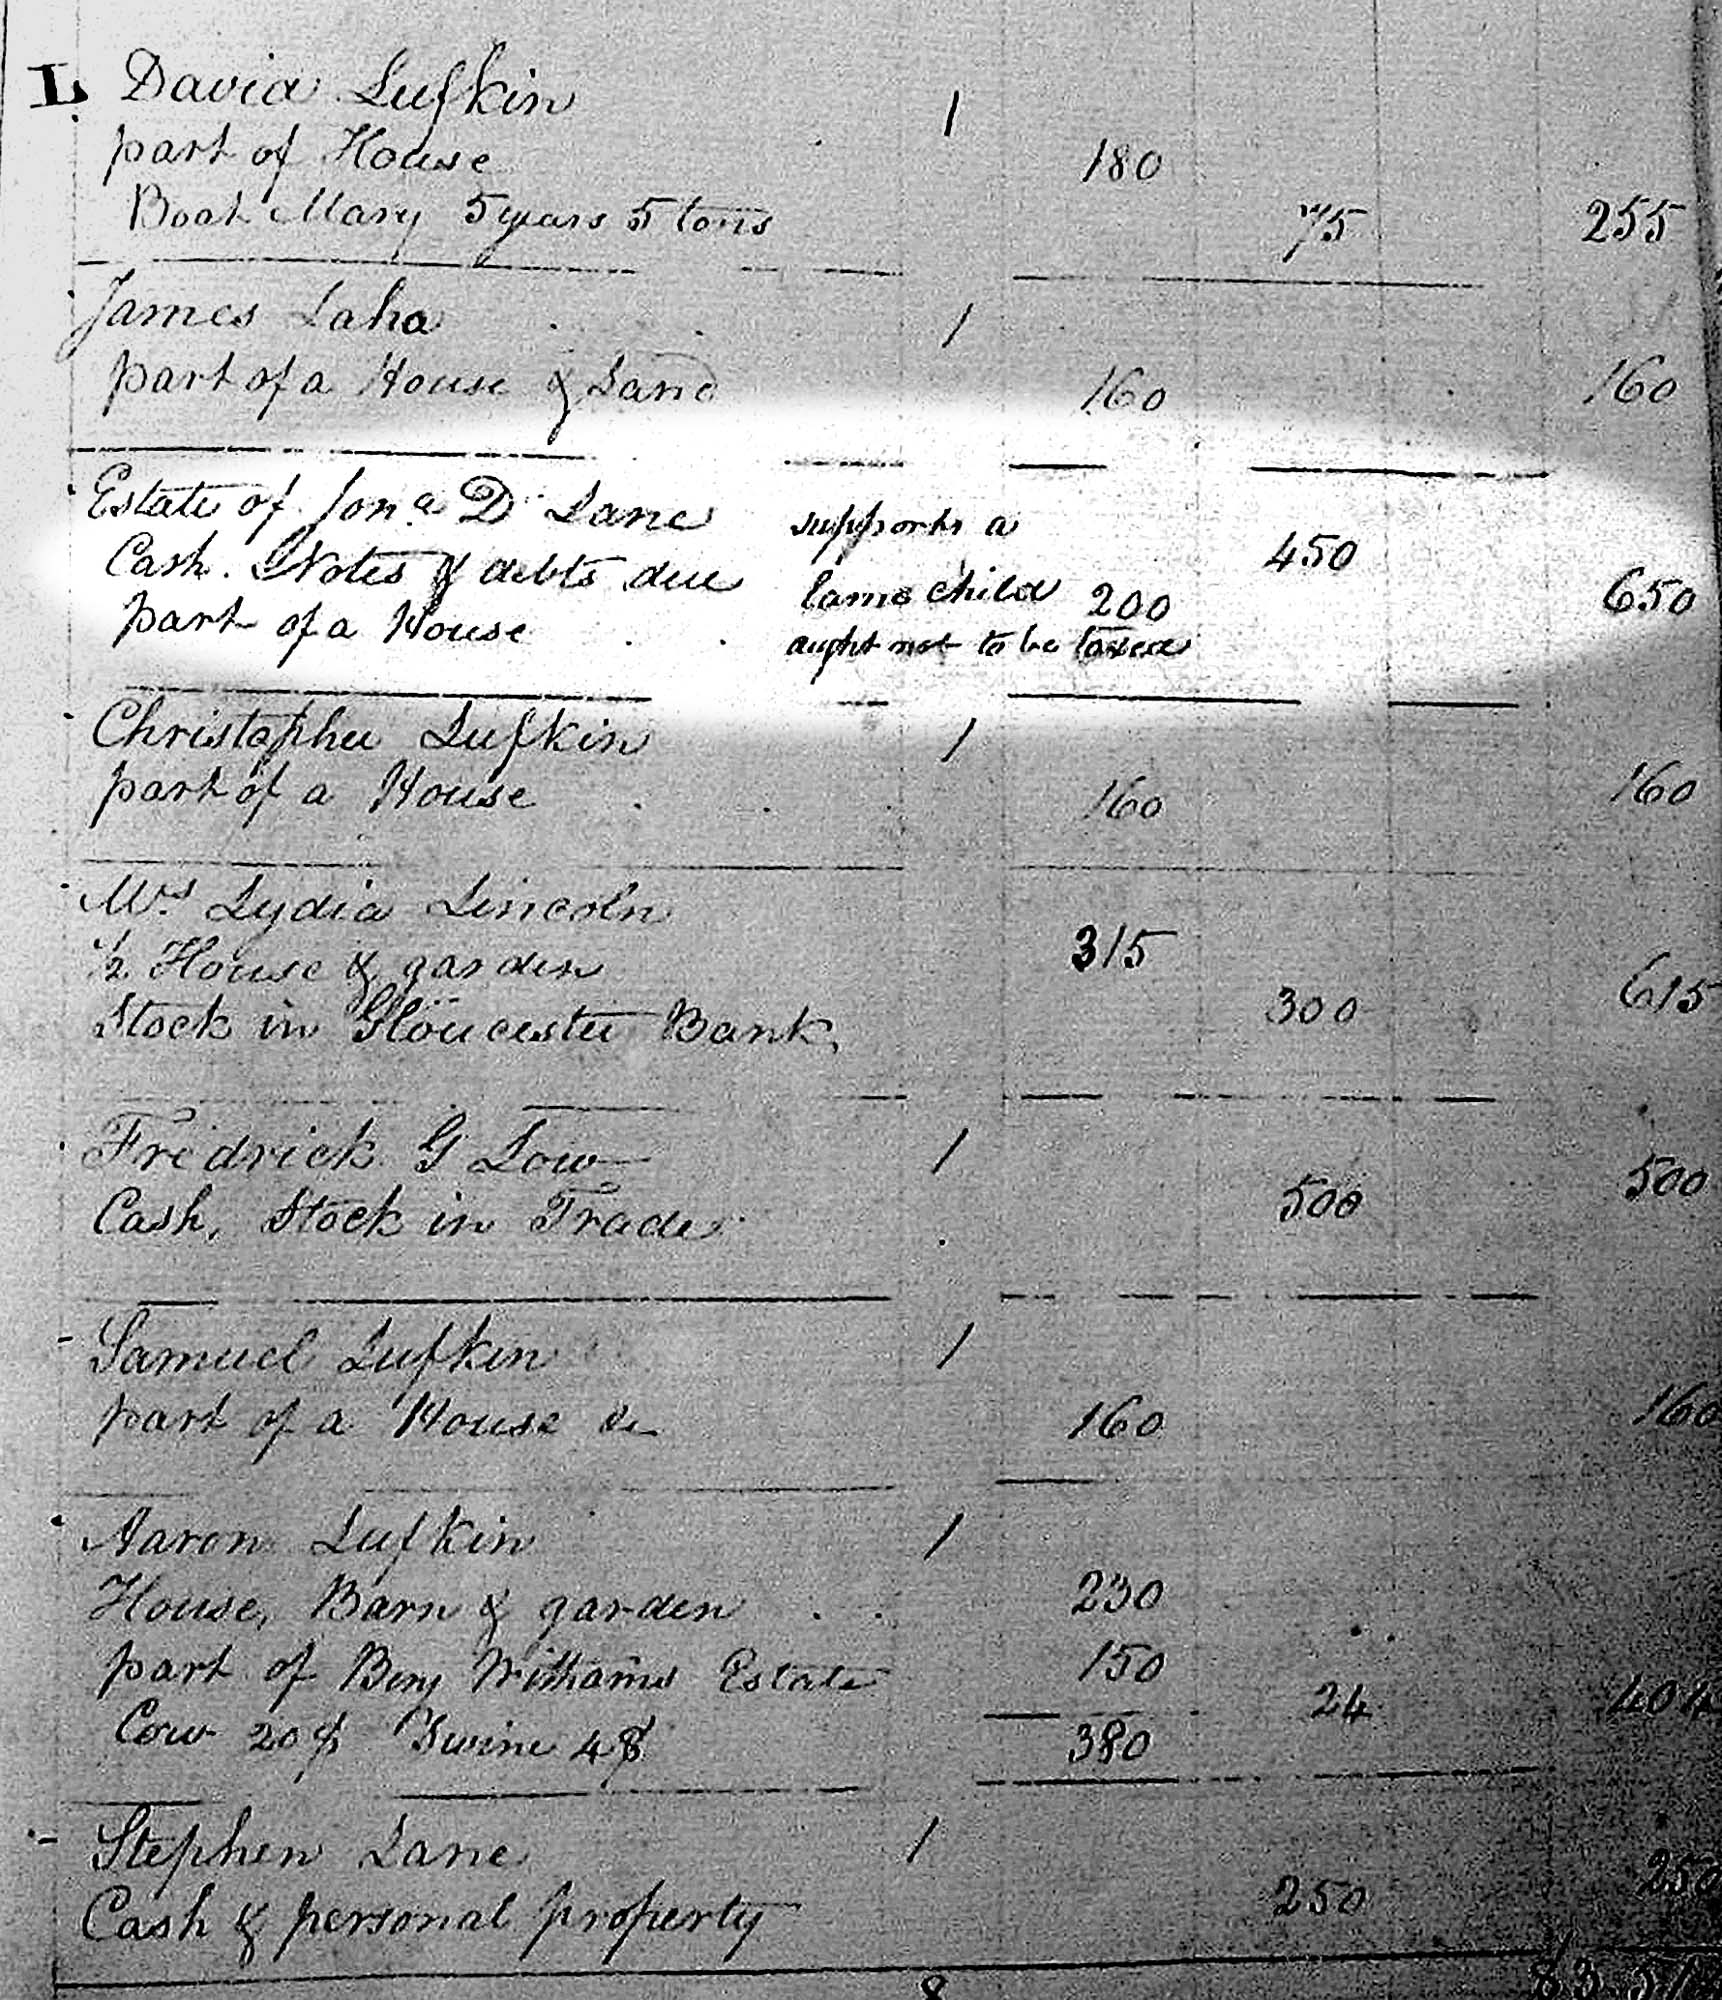 L David Lufkin 1
part of House 180
Boat Mary 5 years 5 tons 75 255
James Laha 1
part of a House & Land 160 160
Estate of Jonª D Lane supports a
Cash. Notes & debts due lame child 450
part of a House 200 650
aught not to be taxed
Christopher Lufkin 1
part of a House 160 160
Mrs Lydia Lincoln
½ House & garden 315
Stock in Gloucester Bank, 300 615
Fredrick G Low 1
Cash, Stock in Trade 500 500
Samuel Lufkin 1
part of a House &c 160 160
Aaron Lufkin 1
House, Barn & garden 230
part of Benj Withams Estate 150
Cow 20$ Swine 4$ 380 24 404
Stephen Lane 1
Cash & personal property 250 250
8